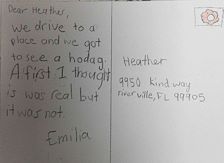 Dear Heather,
we drive to a
place and we got
to see a hodag.
A first I thought
is was real but
it was not.
Emilia
Heather
9950 kind way
riverville, FL 99905